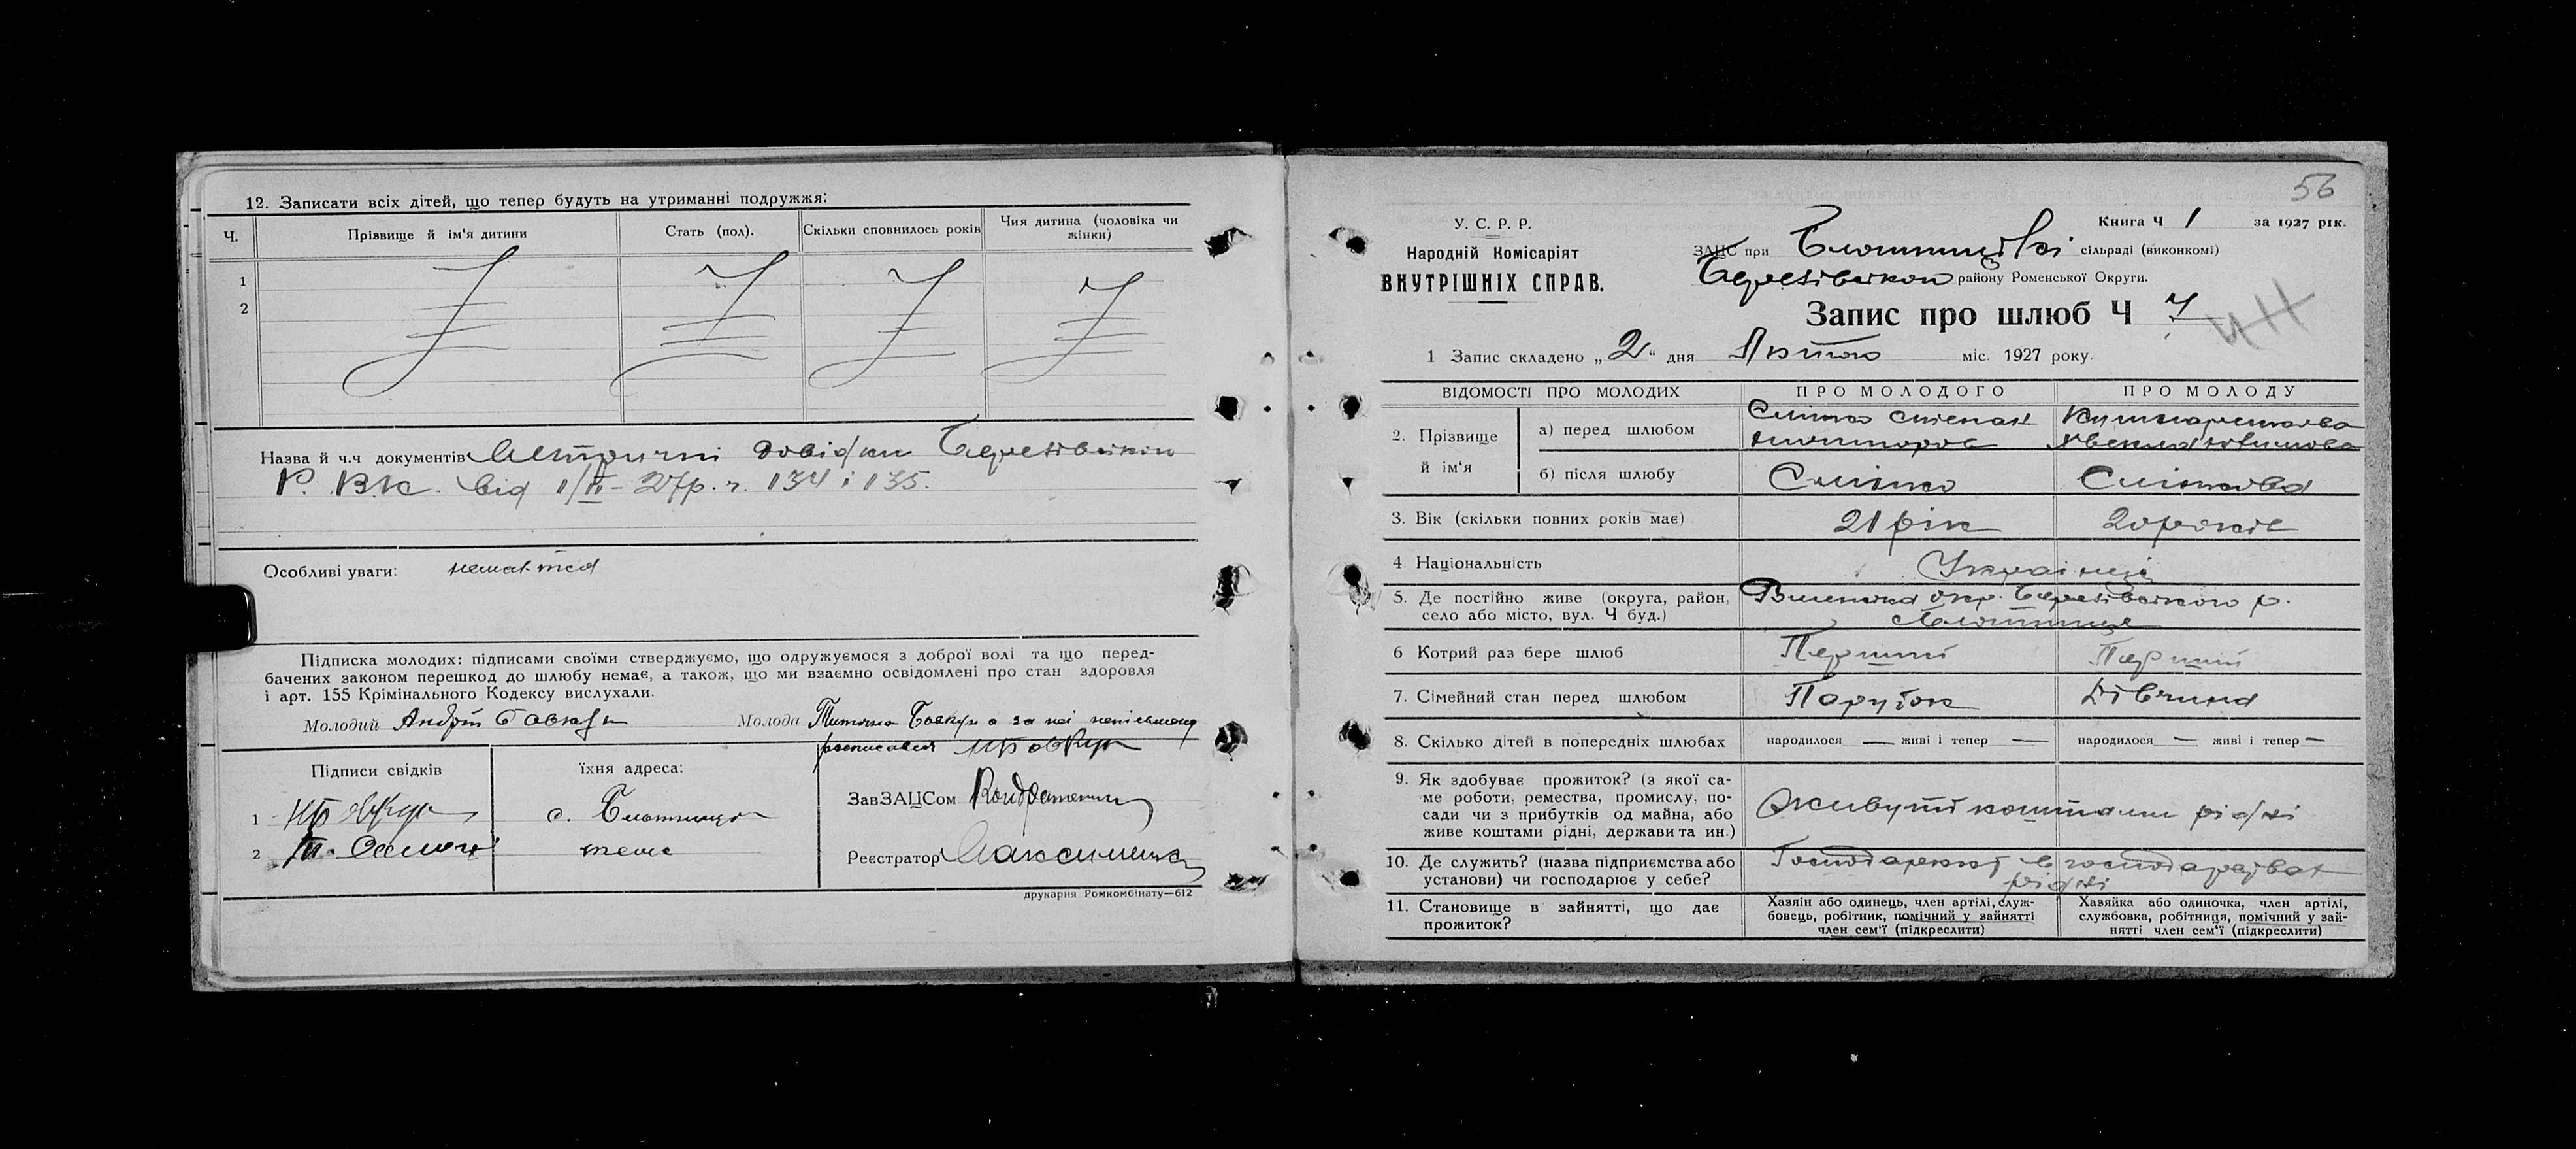 12. Записати всіх дітей, що тепер будуть на утриманні подружжя:
Ч.
Прізвище й ім'я дитини
Стать (пол).
Скільки сповнилось років
Чия дитина (чоловіка чи жінки)
1
2
Назва й ч.ч документів Метричні довідки Березівськ
Р. В.К. від 1/II-27р. ч. 134 і 135.
Особливі уваги:
Підписка молодих: підписами своїми стверджуємо, що одружуємося з доброї волі та що перед-
бачених законом перешкод до шлюбу немає, а також, що ми взаємно освідомлені про стан здоровля
і арт. 155 Крімінального Кодексу вислухали.
Молодий Андрій Бовкун Молода Тетяна Бовкун а за неї неписьмену
росписався Бовкун
Підписи свідків
їхня адреса:
1 с.
2 теж
ЗавЗАЦСом Кондратенко
Реєстратор Максименко
друкарня Ромкомбінату—612
56
У. С. Р. Р.
Народній Комісаріят
ВНУТРІШНІХ СПРАВ.
Книга Ч 1 за 1927 рік.
ЗАЦС при сільраді (виконкомі)
Березівском району Роменської Округи.
Запис про шлюб Ч 7
1 Запис складено „2" дня Лютого міс. 1927 року.
ВІДОМОСТІ ПРО МОЛОДИХ
ПРО МОЛОДОГО
ПРО МОЛОДУ
2. Прізвище й ім'я
а) перед шлюбом
Слінко Степан
б) після шлюбу
Слінко
Слінкова
3. Вік (скільки повних років має)
21 рік
20 років
4 Національність
Українці
5. Де постійно живе (округа, район,
село або місто, вул. Ч буд.)
окр. Березівського р.
6 Котрий раз бере шлюб
Перший
Перший
7. Сімейний стан перед шлюбом
Парубок
Дівчина
8. Скілько дітей в попередніх шлюбах
народилося — живі і тепер —
народилося — живі і тепер —
9. Як здобуває прожиток? (з якої са-
ме роботи, ремества, промислу, по-
сади чи з прибутків од майна, або
живе коштами рідні, держави та ин.)
живуть коштами рідні
10. Де служить? (назва підприємства або
установи) чи господарює у себе?
Господарюют в господарствах
рідні
11. Становище в зайнятті, що дає
прожиток?
Хазяін або одинець, член артілі, служ-
бовець, робітник, помічний у зайнятті
член сем'ї (підкреслити)
Хазяйка або одиночка, член артілі,
службовка, робітниця, помічний у зай-
нятті член сем'ї (підкреслити)